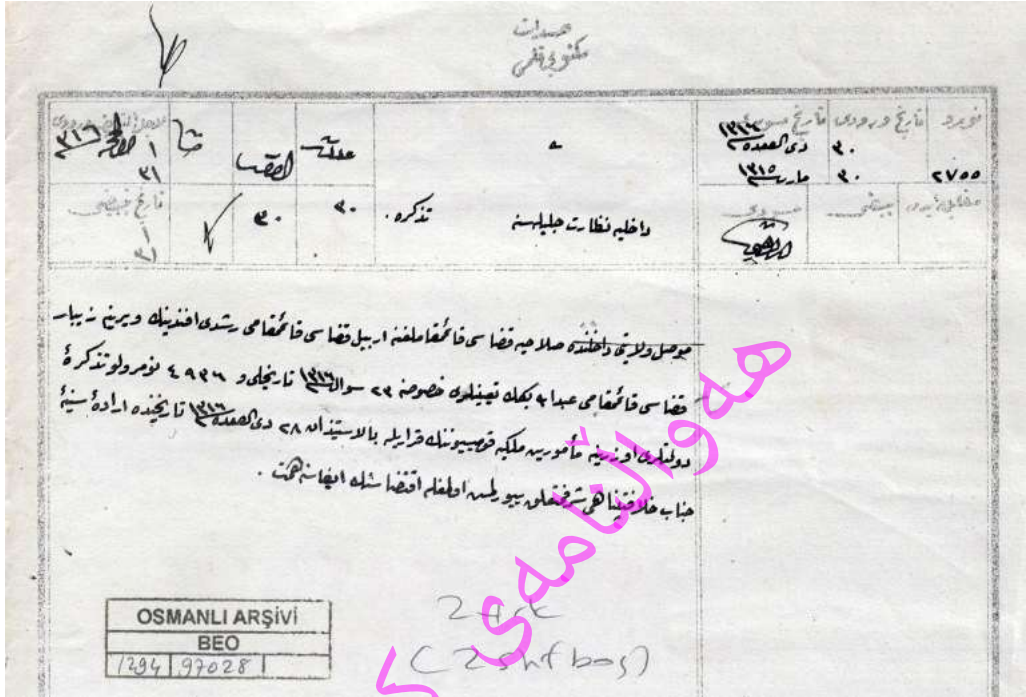 صدارت
مكتوبی قلمی
نومرو
تاريخ ورودی
تاريخ تسويد
٢٧٥٥
٣٠
٣٠
ذی القعده ١٣١٦
مارت ١٣١٥
مسودی
داخليه نظارت جليله سنه
تذكره
٣٠
٣٠
تاريخ تبييضی
٣١
موصل ولايتی داخلنده صلاحيه قضاسی قائمقاملغنه اربيل قضاسی قائمقامی رشدی افندينك ويرينه زيبار
قضاسی قائمقامی عبدالله بكك تعيينلری خصوصنه ٢٣ شوال ١٣١٦ تاريخلی و ٤٩٣٦ نومرولو تذكرۀ
دولتلری اوزرينه مأمورين ملكيه قوميسيوننك قراريله بالاستيذان ٢٨ ذی القعده ١٣١٦ تاريخنده ارادۀ سنيۀ
جناب خلافتپناهی شرفتعلق بيورلمش اولمغله اقتضاسنك ايفاسنه همت .
هەواڵنامەی
OSMANLI ARŞİVİ
BEO
1294 97028
2 trk
(2 shf boş)